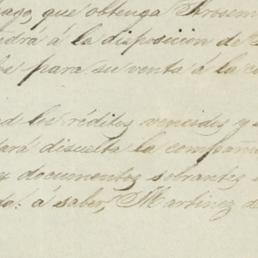 pago, que obtenga Prosem
drá á la disposicion de
para su venta á la c
los réditos vencidos y
ará disuelta la compañ
y documentos sobrantes
á saber, Martinez d